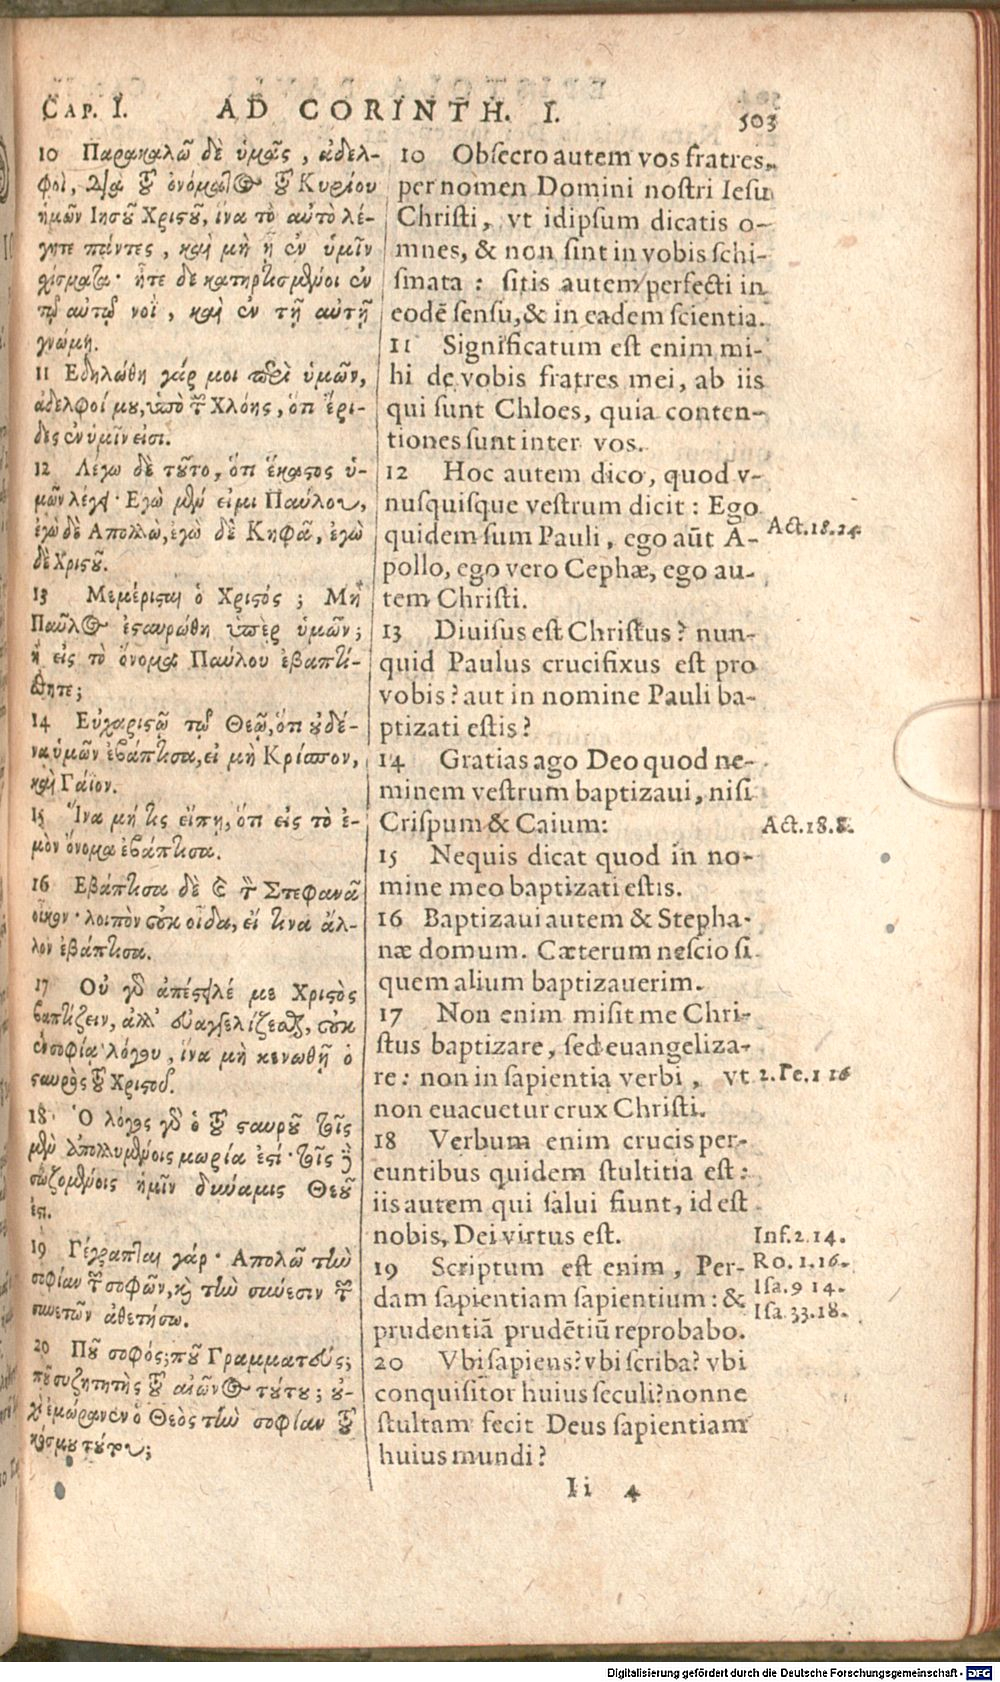 CAP. I. AD CORINTH. I. 503
10 Παρακαλῶ δὲ ὑμᾶς, ἀδελ-
φοὶ, διὰ τοῦ ὀνόματος τοῦ Κυρίου
ἡμῶν Ιησοῦ Χριστοῦ, ἵνα τὸ αὐτὸ λέ-
γητε πάντες, καὶ μὴ ᾖ ἐν ὑμῖν
σχίσματα· ἦτε δὲ κατηρτισμένοι ἐν
τῷ αὐτῷ νοῒ, καὶ ἐν τῇ αὐτῇ
γνώμῃ.
11 Εδηλώθη γάρ μοι περὶ ὑμῶν,
ἀδελφοί μου, ὑπὸ τῶν Χλόης, ὅτι ἔρι-
δες ἐν ὑμῖν εἰσι.
12 Λέγω δὲ τοῦτο, ὅτι ἕκαστος ὑ-
μῶν λέγει· Εγὼ μέν εἰμι Παύλου,
ἐγὼ δὲ Απολλὼ, ἐγὼ δὲ Κηφᾶ, ἐγὼ
δὲ Χριστοῦ.
13 Μεμέρισται ὁ Χριστός; Μὴ
Παῦλος ἐσταυρώθη ὑπὲρ ὑμῶν;
ἢ εἰς τὸ ὄνομα Παύλου ἐβαπτί-
σθητε;
14 Εὐχαριστῶ τῷ Θεῷ, ὅτι οὐδέ-
να ὑμῶν ἐβάπτισα, εἰ μὴ Κρίσπον,
καὶ Γάϊον.
15 Ἵνα μή τις εἴπῃ, ὅτι εἰς τὸ ἐ-
μὸν ὄνομα ἐβάπτισα.
16 Εβάπτισα δὲ καὶ τὸν Στεφανᾶ
οἶκον· λοιπὸν οὐκ οἶδα, εἴ τινα ἄλ-
λον ἐβάπτισα.
17 Οὐ γὰρ ἀπέστειλέ με Χριστὸς
βαπτίζειν, ἀλλ' εὐαγγελίζεσθαι, οὐκ
ἐν σοφίᾳ λόγου, ἵνα μὴ κενωθῇ ὁ
σταυρὸς τοῦ Χριστοῦ.
18 Ὁ λόγος γὰρ ὁ τοῦ σταυροῦ τοῖς
μὲν ἀπολλυμένοις μωρία ἐστί· τοῖς δὲ
σωζομένοις ἡμῖν δύναμις Θεοῦ
ἐστι.
19 Γέγραπται γάρ· Απολῶ τὴν
σοφίαν τῶν σοφῶν, καὶ τὴν σύνεσιν τῶν
συνετῶν ἀθετήσω.
20 Ποῦ σοφός; ποῦ Γραμματεύς;
ποῦ συζητητὴς τοῦ αἰῶνος τούτου; οὐ-
χὶ ἐμώρανεν ὁ Θεὸς τὴν σοφίαν τοῦ
κόσμου τούτου;
10 Obsecro autem vos fratres,
per nomen Domini nostri Iesu
Christi, vt idipsum dicatis o-
mnes, & non sint in vobis schi-
smata: sitis autem perfecti in
eodē sensu, & in eadem scientia.
11 Significatum est enim mi-
hi de vobis fratres mei, ab iis
qui sunt Chloes, quia conten-
tiones sunt inter vos.
12 Hoc autem dico, quod v-
nusquisque vestrum dicit: Ego
quidem sum Pauli, ego aūt A-
pollo, ego vero Cephæ, ego au-
tem Christi.
13 Diuisus est Christus? nun-
quid Paulus crucifixus est pro
vobis? aut in nomine Pauli ba-
ptizati estis?
14 Gratias ago Deo quod ne-
minem vestrum baptizaui, nisi
Crispum & Caium:
15 Nequis dicat quod in no-
mine meo baptizati estis.
16 Baptizaui autem & Stepha-
næ domum. Cæterum nescio si
quem alium baptizauerim.
17 Non enim misit me Chri-
stus baptizare, sed euangeliza-
re: non in sapientia verbi, vt
non euacuetur crux Christi.
18 Verbum enim crucis per-
euntibus quidem stultitia est:
iis autem qui salui fiunt, id est
nobis, Dei virtus est.
19 Scriptum est enim, Per-
dam sapientiam sapientium: &
prudentiā prudētiū reprobabo.
20 Vbi sapiens? vbi scriba? vbi
conquisitor huius seculi? nonne
stultam fecit Deus sapientiam
huius mundi?
Act. 18. 24.
Act. 18. 8.
2. Pe. 1 16
Inf. 2. 14.
Ro. 1. 16.
Isa. 9 14.
Isa. 33. 18.
Ii 4
Digitalisierung gefördert durch die Deutsche Forschungsgemeinschaft - DFG